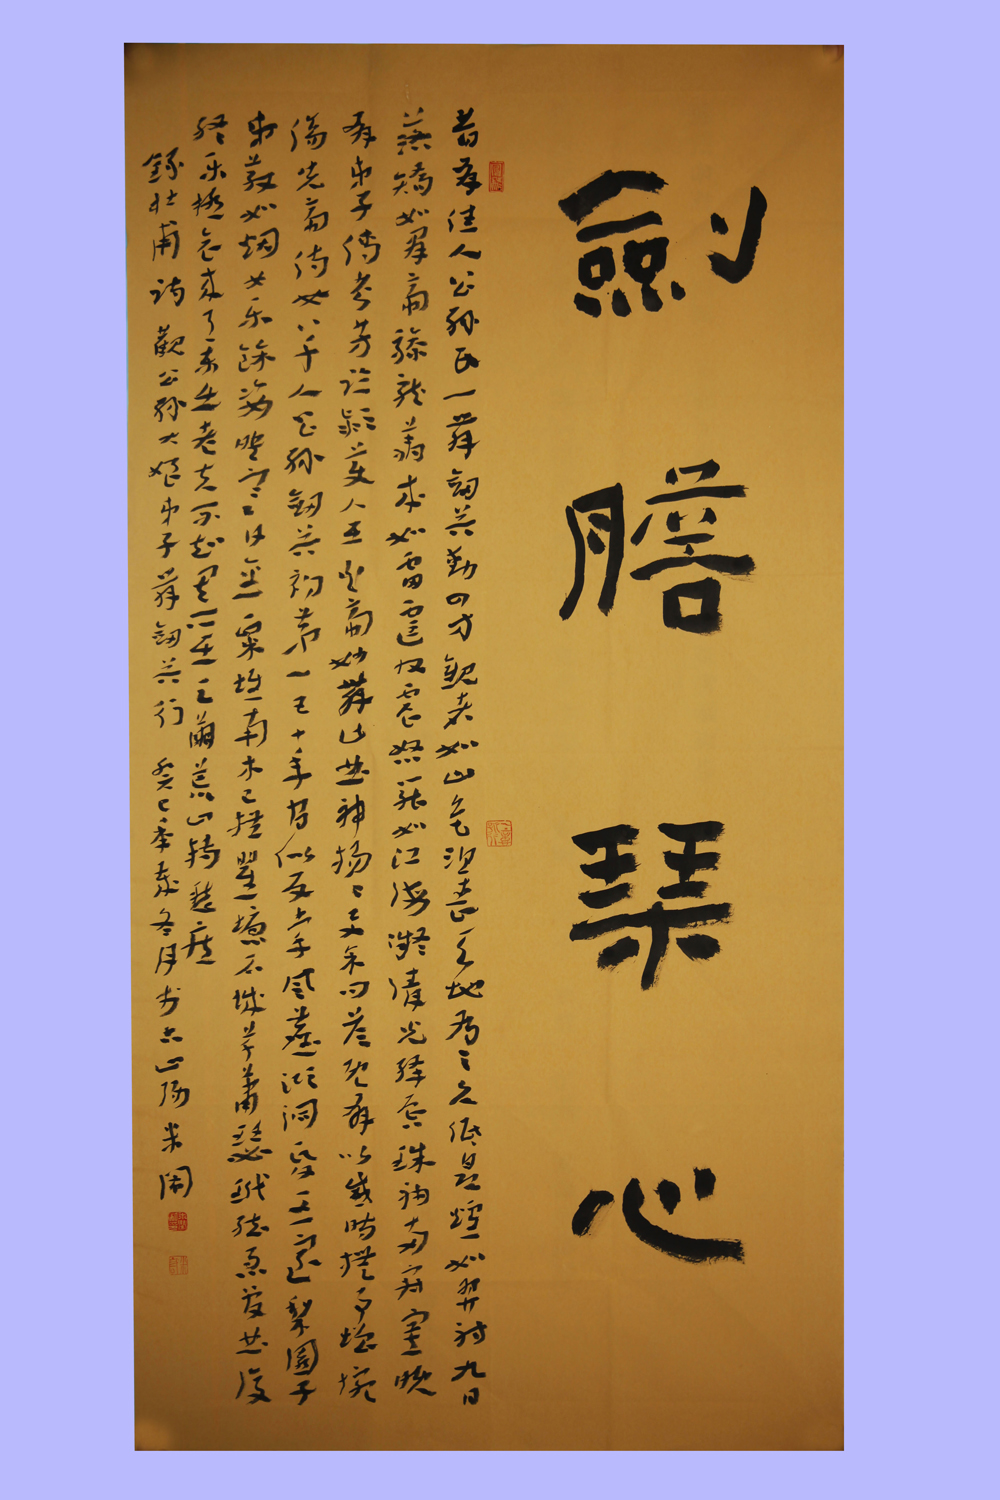 劍膽琴心
昔有佳人公孫氏一舞劍器動四方觀者如山色沮喪天地為之久低昂㸌如羿射九日
落矯如羣帝驂龍翔來如雷霆收震怒罷如江海凝清光絳唇珠袖兩寂寞晚
有弟子傳芬芳臨潁美人在白帝妙舞此曲神揚揚與余問答既有以感時撫事增惋
傷先帝侍女八千人公孫劍器初第一五十年間似反掌風塵澒洞昏王室梨園子
弟散如烟女樂餘姿映寒日金粟堆南木已拱瞿塘石城草蕭瑟玳弦急管曲復
終樂極哀來月東出老夫不知其所往足繭荒山轉愁疾
錄杜甫詩觀公孫大娘弟子舞劍器行 癸巳年歲冬月山陽米閙